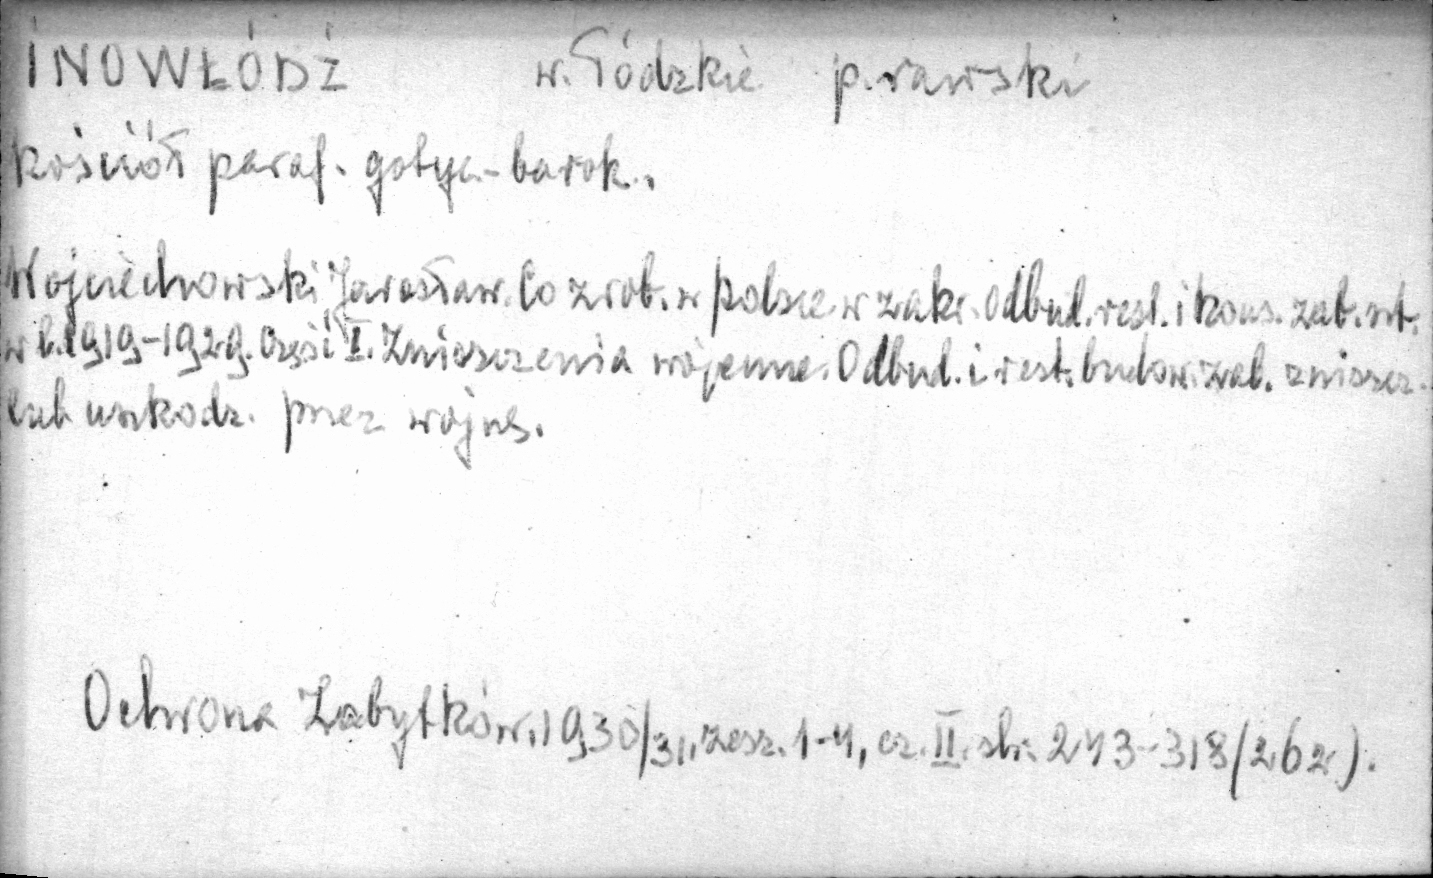 INOWŁÓDŹ w. Łódzkie p. rawski
kościół paraf. gotyc-barok.
Wojciechowski Jarosław. Co zrob. w Polsce w zakr. Odbud. rest. i kons. zab. szt.
w l. 1919-1929. Część I. Zniszczenia wojenne. Odbud. i rest. budow. zab. zniszcz.
lub uszkodz. przez wojnę.
Ochrona Zabytków. 1930/31, zesz. 1-4, cz. II. str. 243-318 (262).